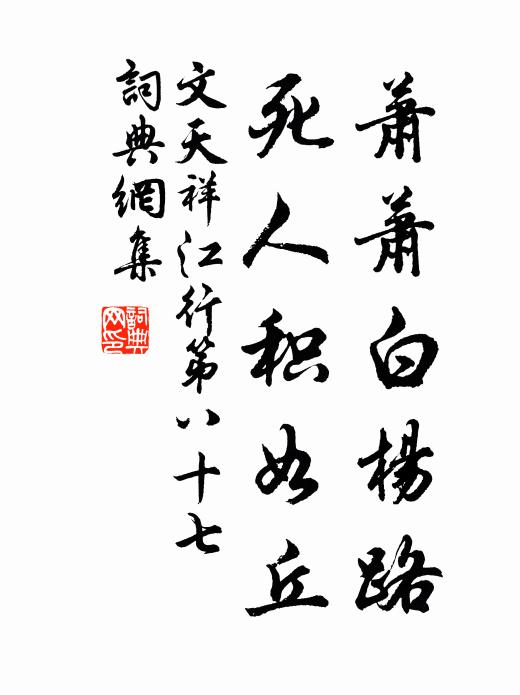 蕭蕭白楊路
死人积如丘
文天祥江行第八十七
詞典網集
詞典网印